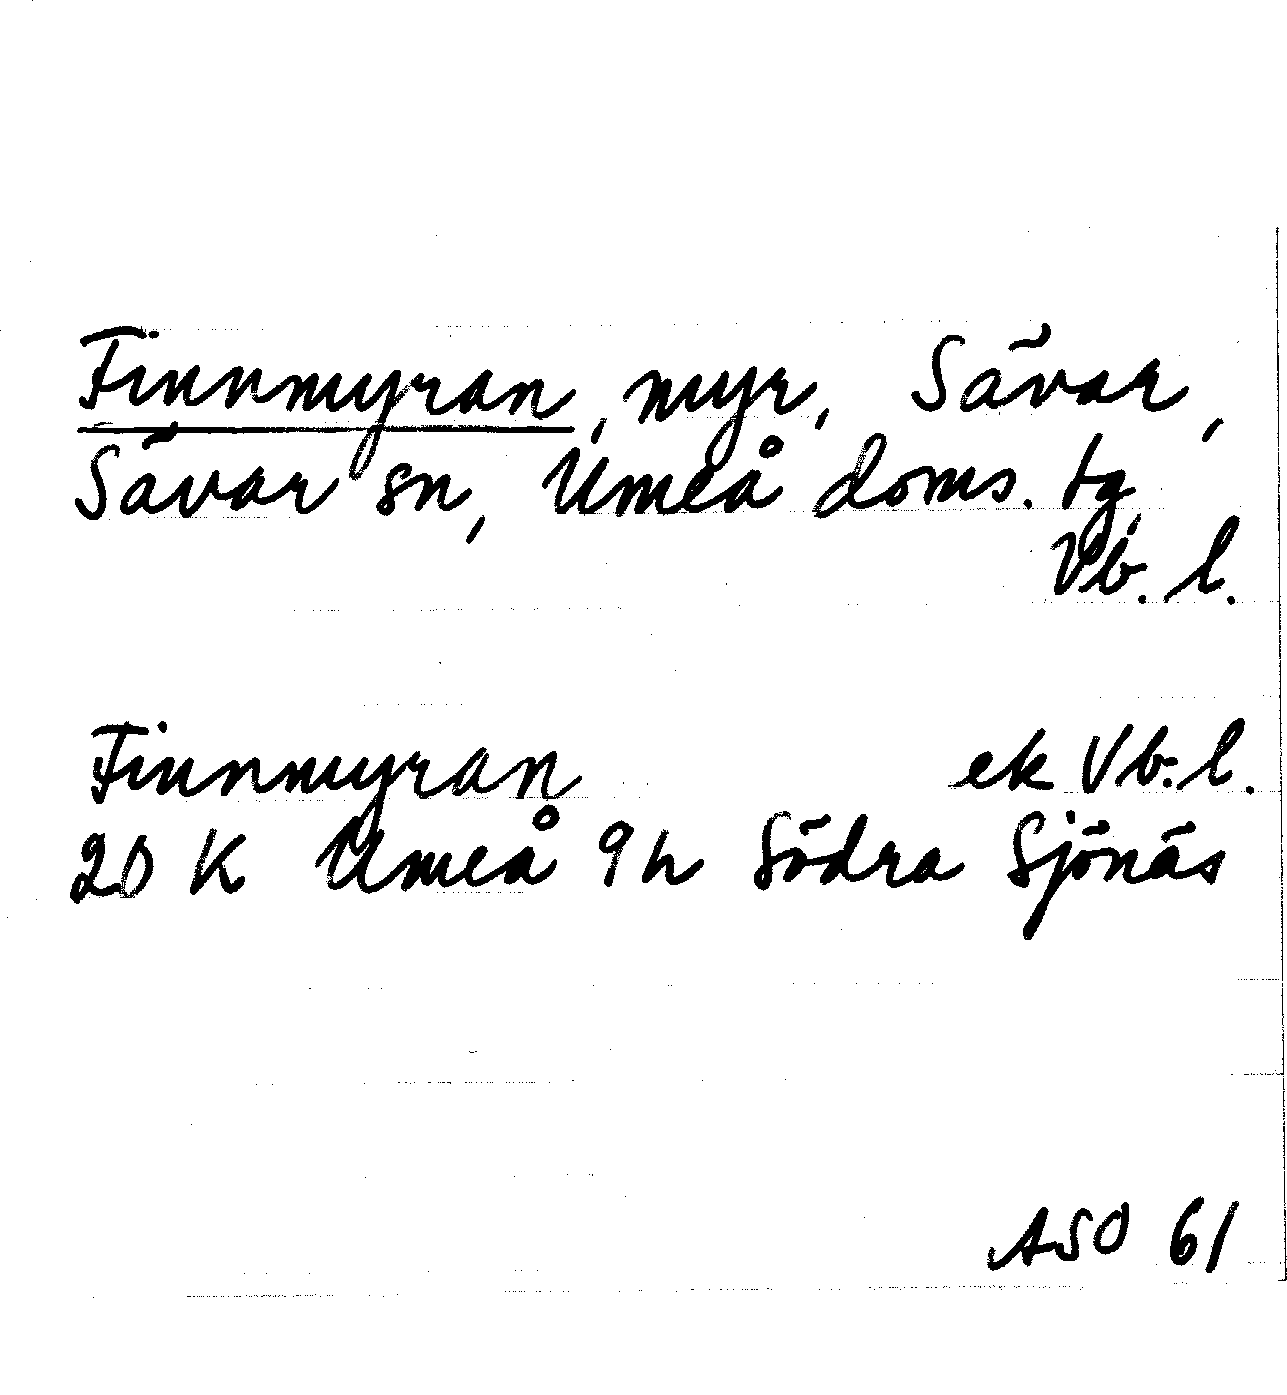 Finnmyran, myr, Sävar,
Sävar sn, Umeå doms. tg,
Vb. l.
Finnmyran ek Vb. l.
20 K Umeå 9h Södra Sjönäs
ASO 61